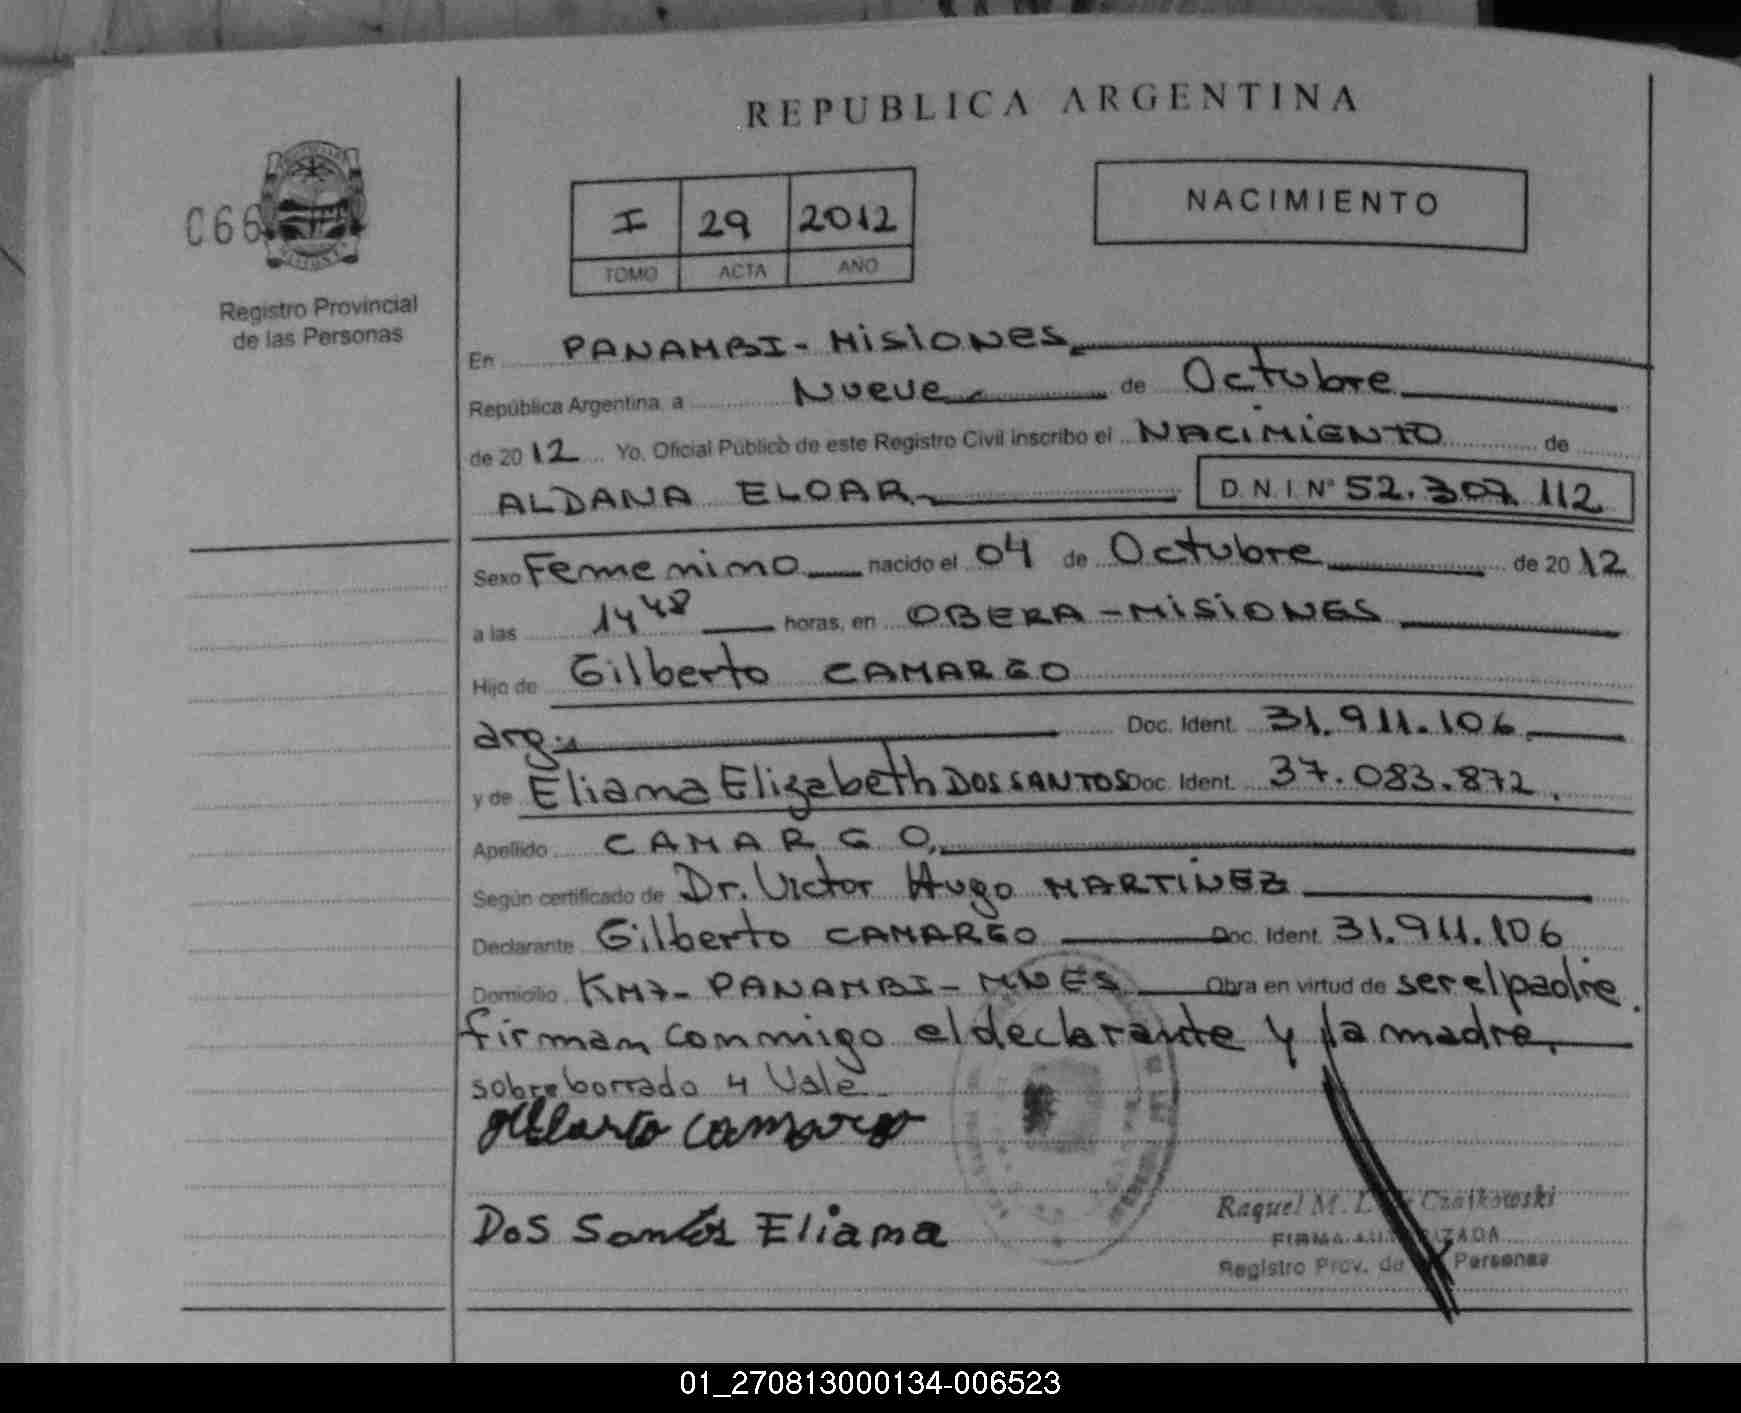 REPUBLICA ARGENTINA
NACIMIENTO
I 29 2012
TOMO ACTA AÑO
C66
Registro Provincial
de las Personas
En PANAMBI - MisioNes
República Argentina, a Nueve de Octubre
de 2012 Yo, Oficial Público de este Registro Civil inscribo el NACIMIENTO de
ALDANA ELOAR D.N.I. N° 52.307.112
Sexo Femenino nacido el 04 de Octubre de 2012
a las 14 48 horas, en OBERA - MISIONES
Hijo de Gilberto CAMARGO
arg. Doc. Ident. 31.911.106
y de Eliana Elizabeth DOS SANTOS Doc. Ident. 37.083.872.
Apellido CAMARGO,
Según certificado de Dr. Victor Hugo MARTINEZ
Declarante Gilberto CAMARGO Doc. Ident. 31.911.106
Domicilio KM7 - PANAMBI - MNES Obra en virtud de ser el padre.
firman conmigo el declarante y la madre.
sobre borrado 4 Vale
Gilberto Camargo
Dos Santos Eliana
Raquel M. Czajkowski
FIRMA AUTORIZADA
Registro Prov. de Personas
01_270813000134-006523